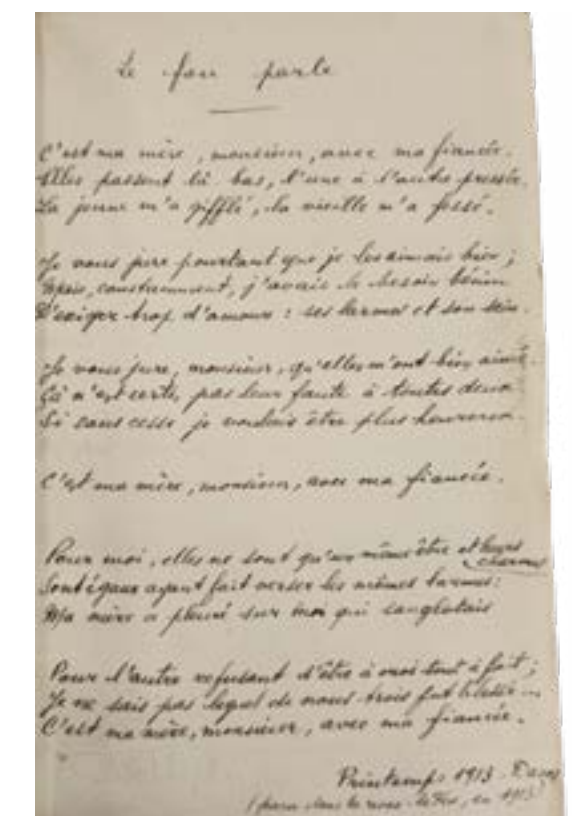 Le fou parle
C'est ma mère, monsieur, avec ma fiancée.
Elles passent là bas, l'une à l'autre pressée.
La jeune m'a gifflé, la vieille m'a fessé.
Je vous jure pourtant que je les aimais bien ;
Mais, constamment, j'avais le besoin bénin
D'exiger trop d'amour : ses larmes et son sein.
Je vous jure, monsieur, qu'elles m'ont bien aimé.
Ça n'est certes pas leur faute à toutes deux
Si sans cesse je voulais être plus heureux.
C'est ma mère, monsieur, avec ma fiancée.
Pour moi, elles ne sont qu'un même être et leurs charmes
Sont égaux ayant fait verser les mêmes larmes :
Ma mère a pleuré sur moi qui sanglotais
Pour l'autre refusant d'être à moi tout à fait ;
Je ne sais pas lequel de nous trois fut blessé...
C'est ma mère, monsieur, avec ma fiancée.
Printemps 1913. Davos
(paru dans la revue en 1913)